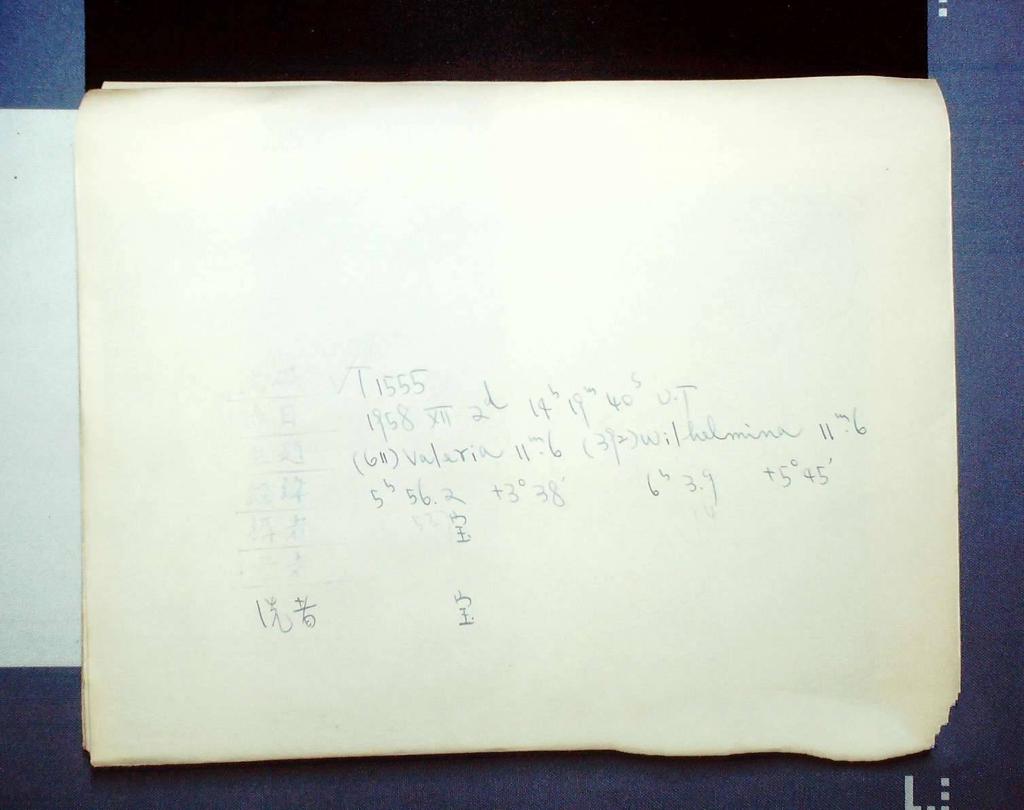 √T1555
1958 XII 2ᵈ 14ʰ 19ᵐ 40ˢ U.T
(611) Valeria 11ᵐ.6 (392) Wilhelmina 11ᵐ.6
5ʰ 56.2 +3° 38' 6ʰ 3.9 +5° 45'
宝
宝